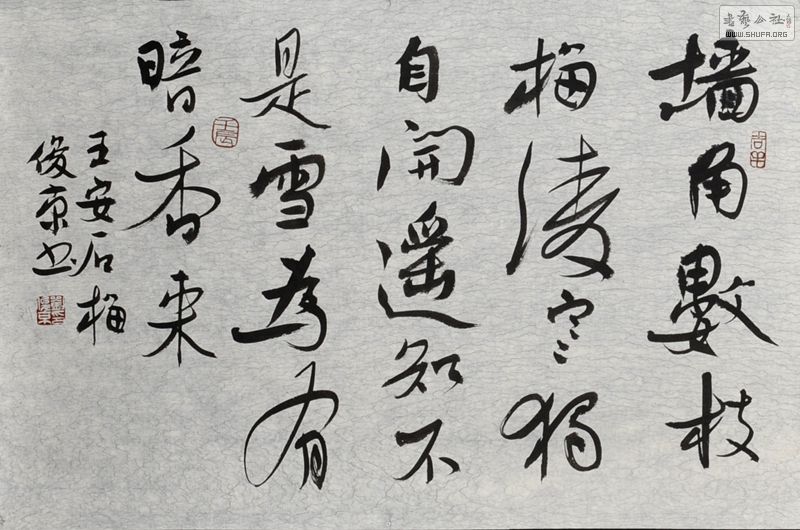 墙角數枝
梅凌寒獨
自開遥知不
是雪為有
暗香来
王安石梅
俊京书
書藝公社
WWW.SHUFA.ORG